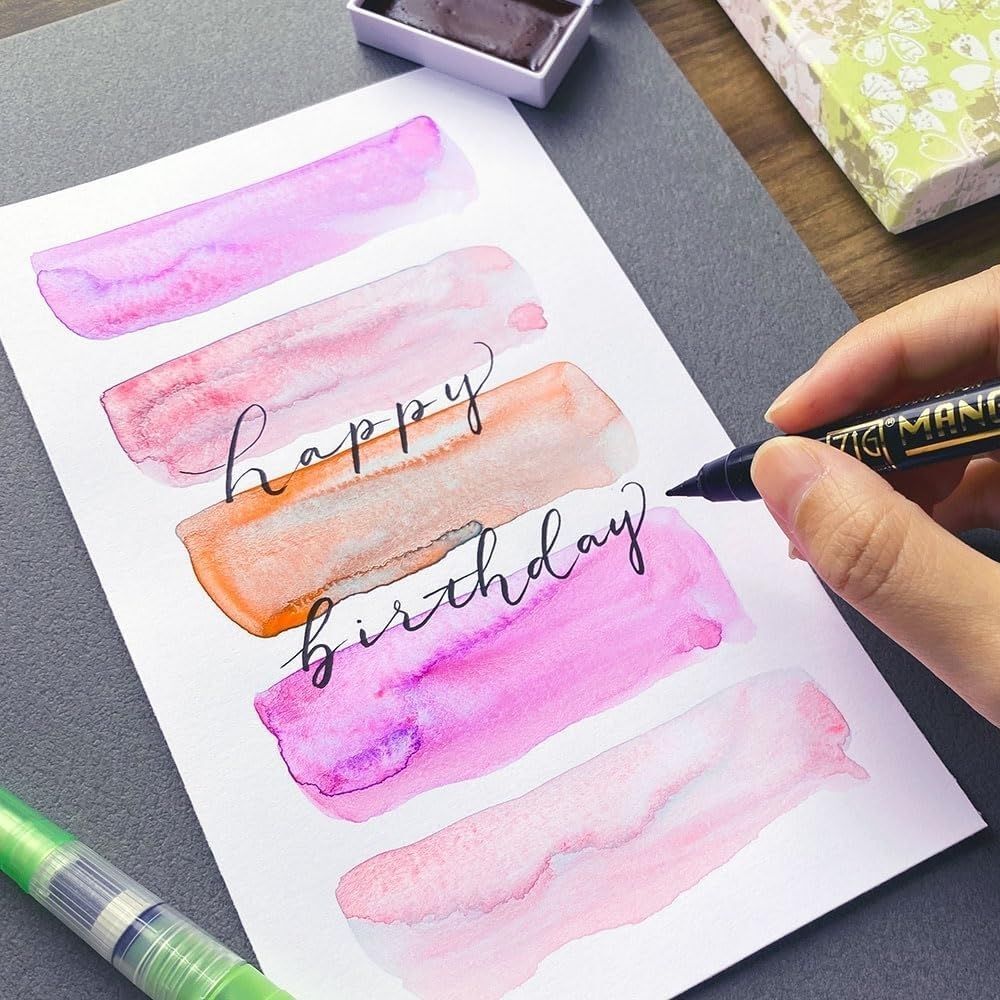 happy
birthday
ZIG® MANG